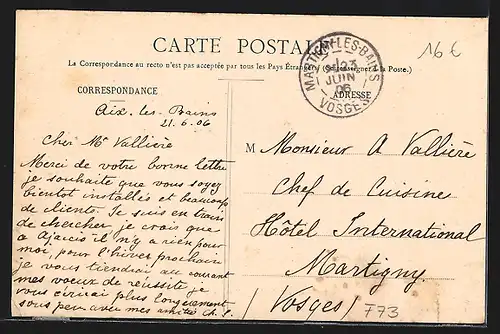 CARTE POSTALE
La Correspondance au recto n'est pas acceptée par tous les Pays Étrangers (Se renseigner à la Poste.)
MARTIGNY-LES-BAINS
23
JUIN
06
VOSGES
16€
CORRESPONDANCE
ADRESSE
Aix-les-Bains
21.6.06
Cher Mr Vallière
Merci de votre bonne lettre
je souhaite que vous soyez
bientot installés et beaucoup
de clients. Je suis en train
de chercher je crois que
a Ajaccio il n'y a rien pour
moi, pour l'hiver prochain
je vous tiendrai au courant
mes voeux de réussite je
vous écrirai plus longuement
sous peu avec mes amitiés Ch. L.
M Monsieur A Vallière
Chef de Cuisine
Hôtel International
Martigny
(Vosges)
F73